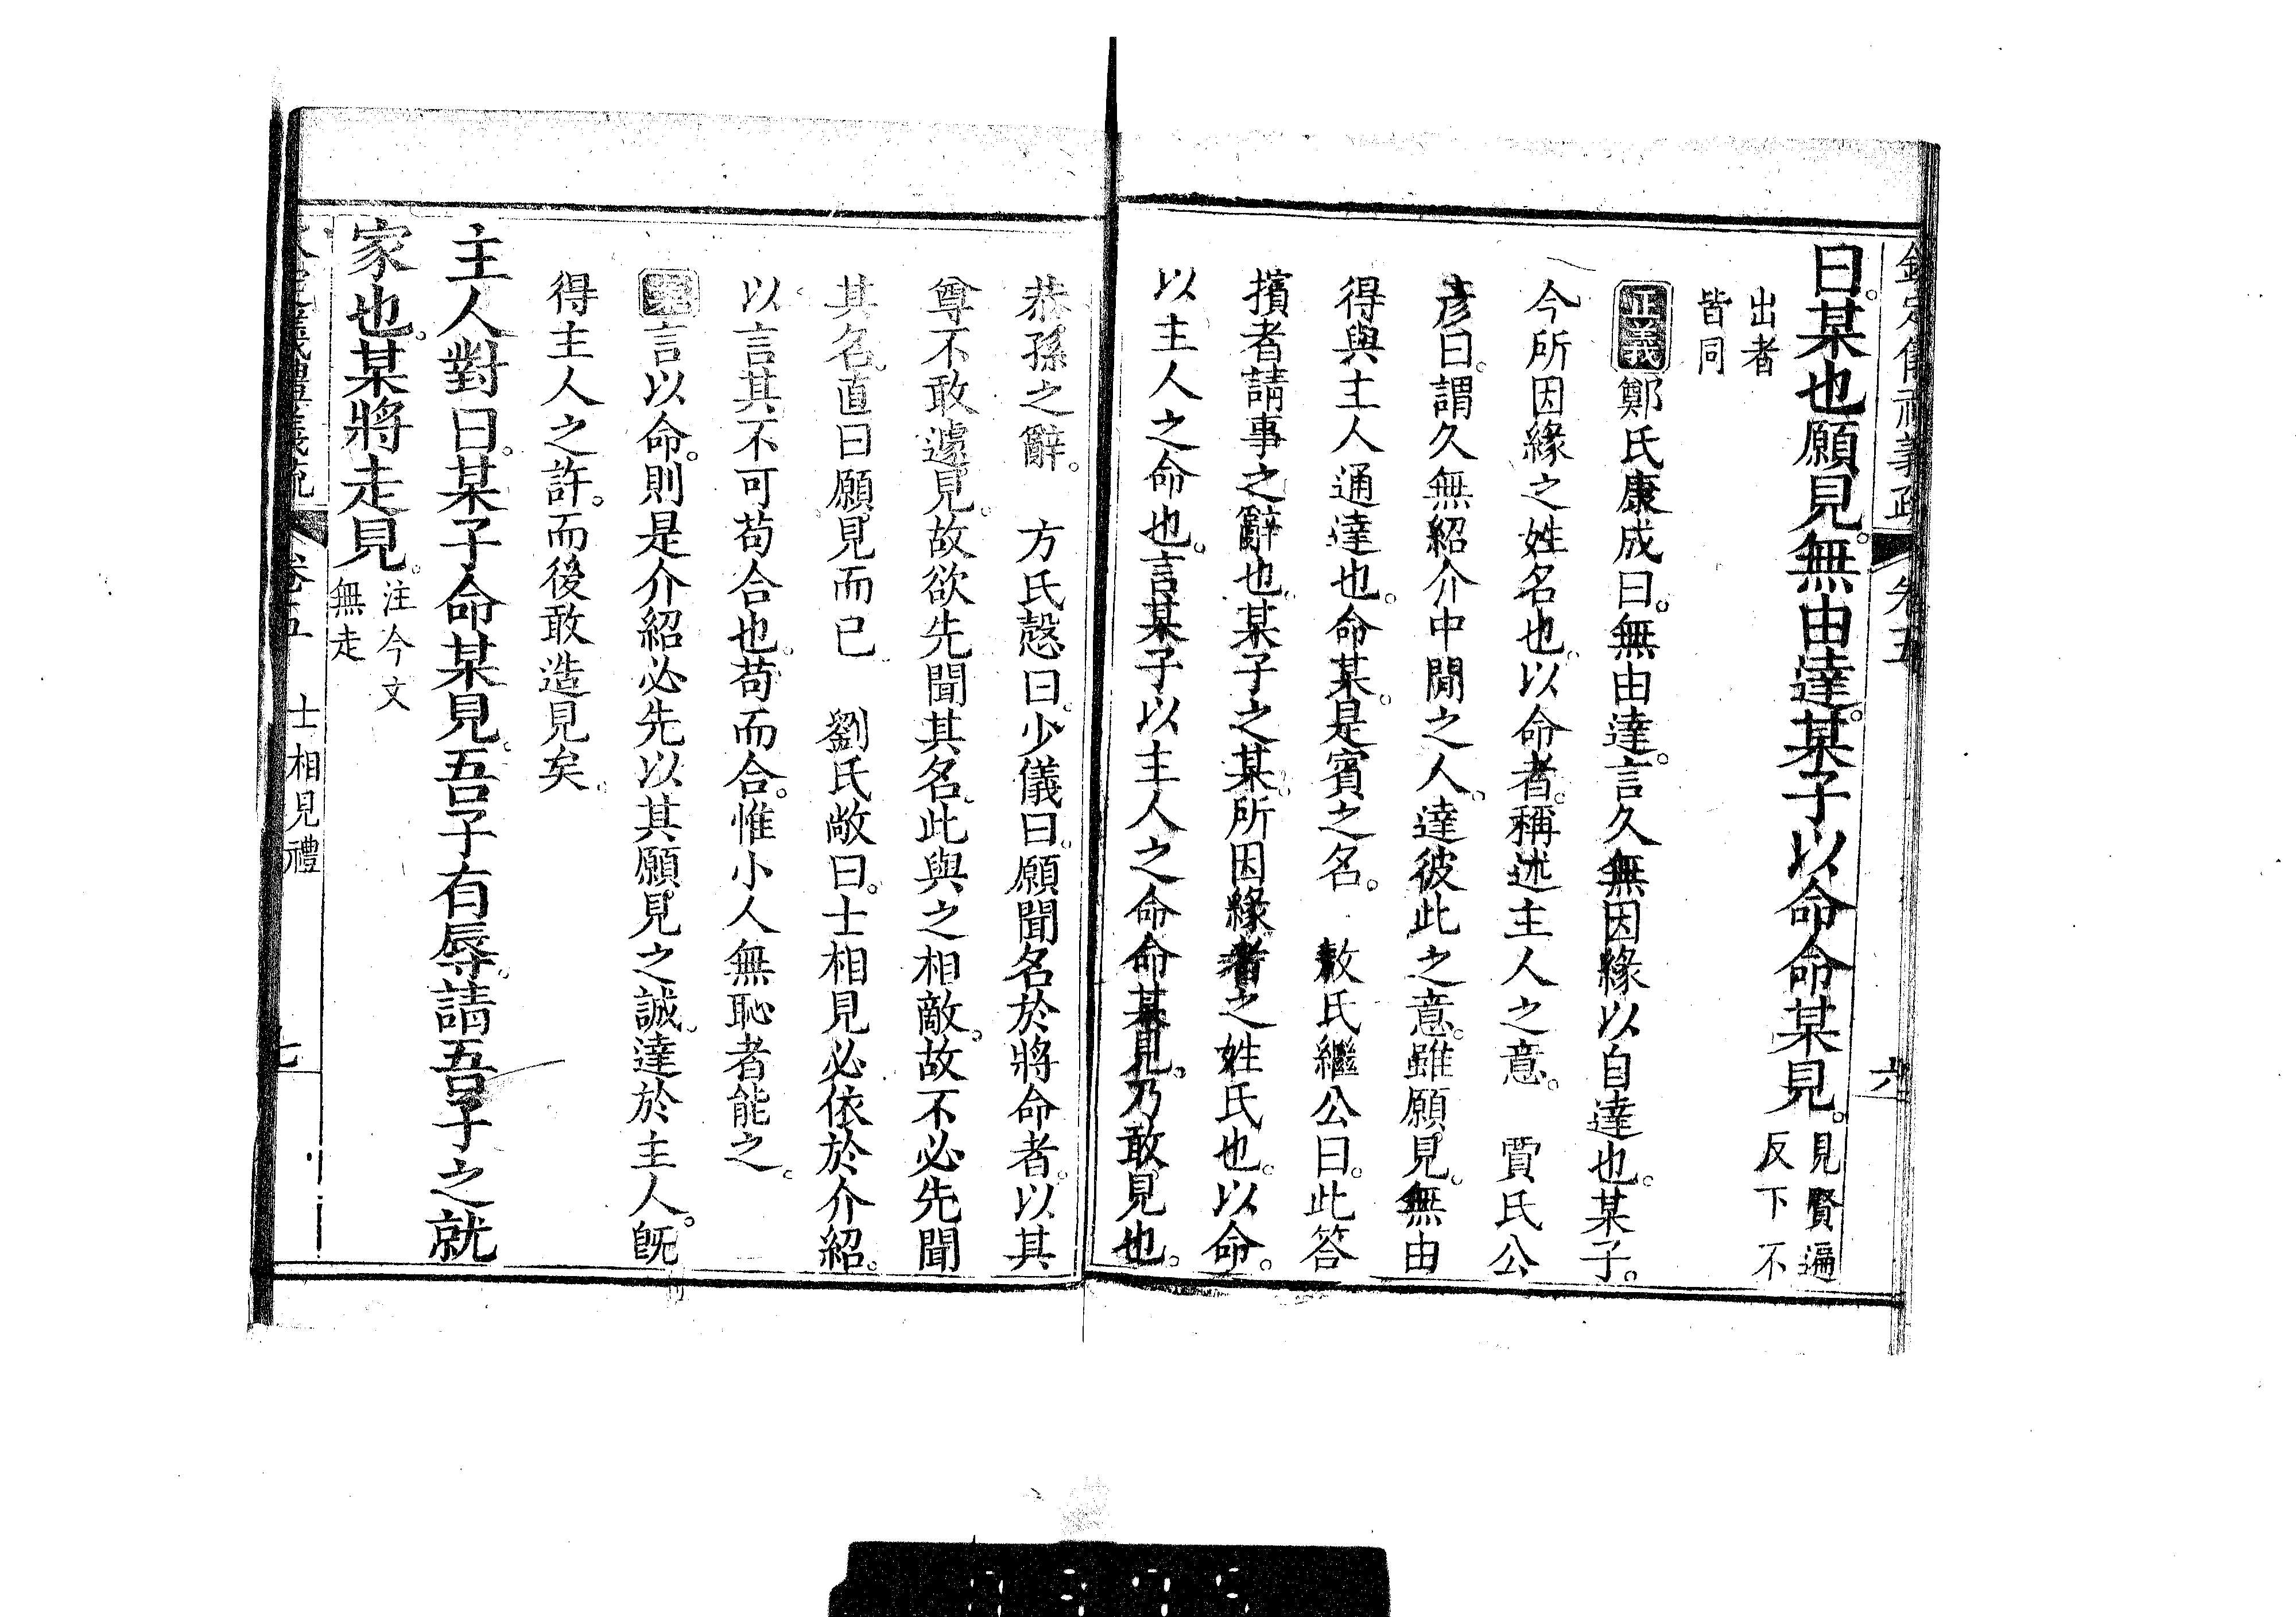 欽定儀禮義疏 卷五 六
曰。某也願見。無由達。某子以命命某見。見賢遍反下不
出者皆同
正義鄭氏康成曰。無由達。言久無因緣以自達也。某子。
今所因緣之姓名也。以命者。稱述主人之意。 賈氏公
彦曰。謂久無紹介中閒之人。達彼此之意。雖願見。無由
得與主人通達也。命某。是賓之名。 敖氏繼公曰。此答
擯者請事之辭也。某子之某。所因緣者之姓氏也。以命。
以主人之命也。言某子以主人之命命某見。乃敢見也。
恭孫之辭。 方氏慤曰。少儀曰。願聞名於將命者。以其
尊不敢遽見。故欲先聞其名。此與之相敵。故不必先聞
其名。直曰願見而已 劉氏敞曰。士相見必依於介紹。
以言其不可苟合也。苟而合。惟小人無恥者能之。
案言以命。則是介紹必先以其願見之誠。達於主人。旣
得主人之許。而後敢造見矣。
主人對曰。某子命某見。吾子有辱。請吾子之就
家也。某將走見。注今文無走
欽定儀禮義疏 卷五 士相見禮 七